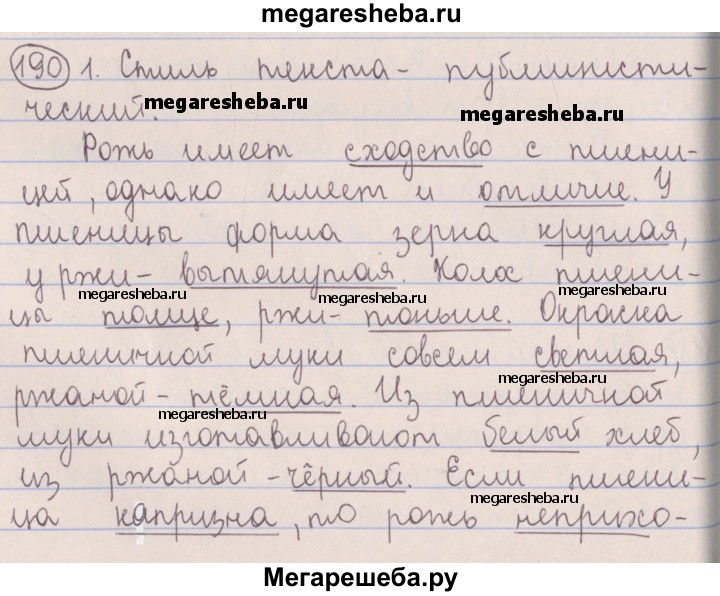 megaresheba.ru
190 1. Стиль текста - публицисти-
ческий.
megaresheba.ru
megaresheba.ru
Рожь имеет сходство с пшени-
цей, однако имеет и отличие. У
пшеницы форма зерна круглая,
у ржи - вытянутая. Колос пшени-
megaresheba.ru
megaresheba.ru
цы толще, ржи - тоньше. Окраска
пшеничной муки совсем светлая,
megaresheba.ru
ржаной - тёмная. Из пшеничной
megaresheba.ru
муки изготавливают белый хлеб,
из ржаной - чёрный. Если пшени-
megaresheba.ru
ца капризна, то рожь неприхо-
Мегарешеба.ру